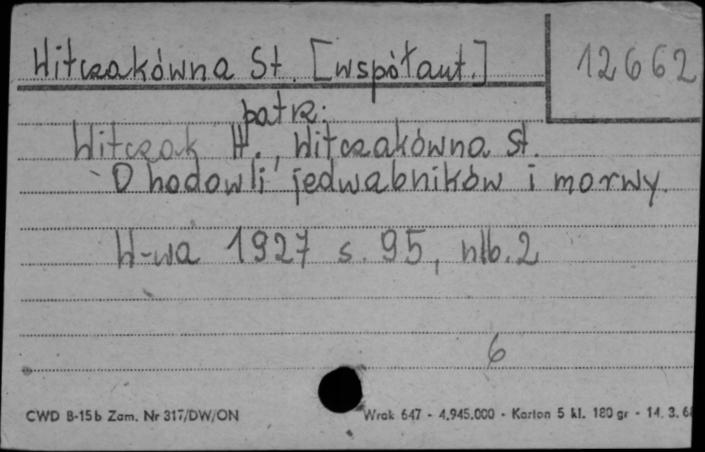 Witczakówna St. [współaut.] 12662
patrz:
Witczak H., Witczakówna St.
O hodowli jedwabników i morwy.
W-wa 1927 s. 95, nlb. 2
6
CWD B-15b Zam. Nr 317/DW/ON Wrak 647 - 4.945.000 - Karton 5 kl. 180 gr - 14. 3. 6